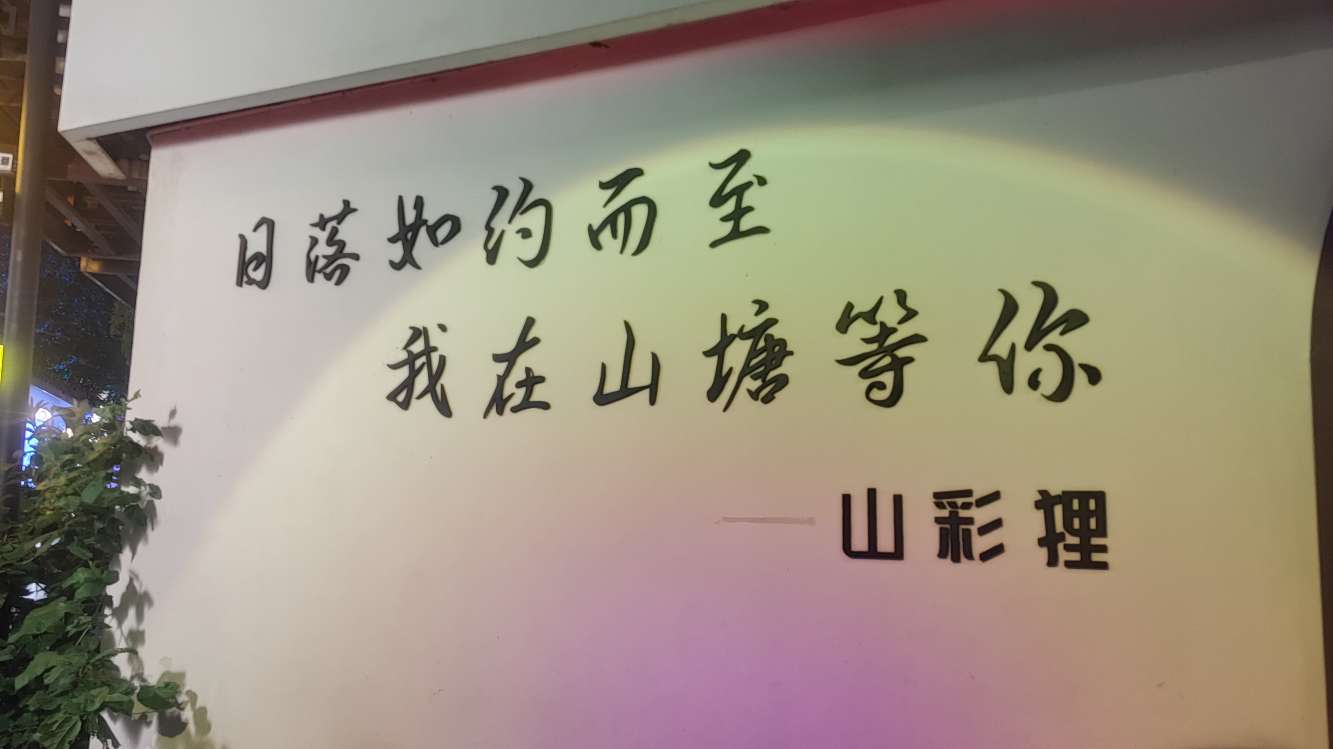 日落如约而至
我在山塘等你
—山彩捚